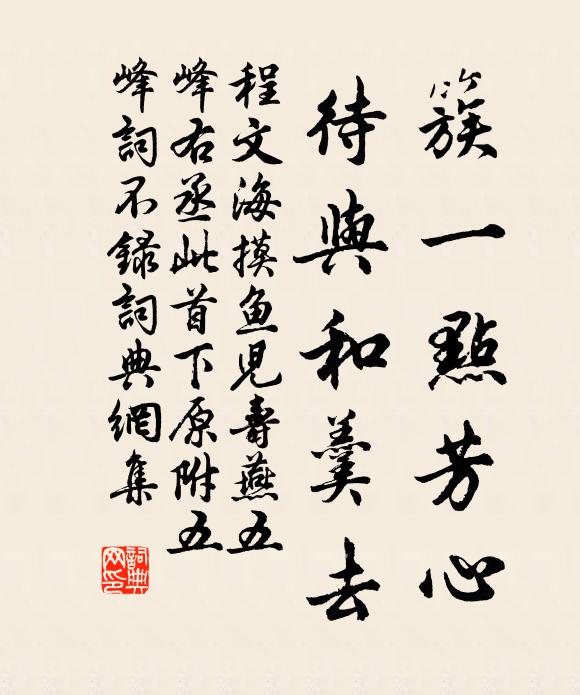 簇一點芳心
待與和羹去
程文海摸魚児壽燕五
峰右丞此首下原附五
峰詞不録詞典網集
詞典網印